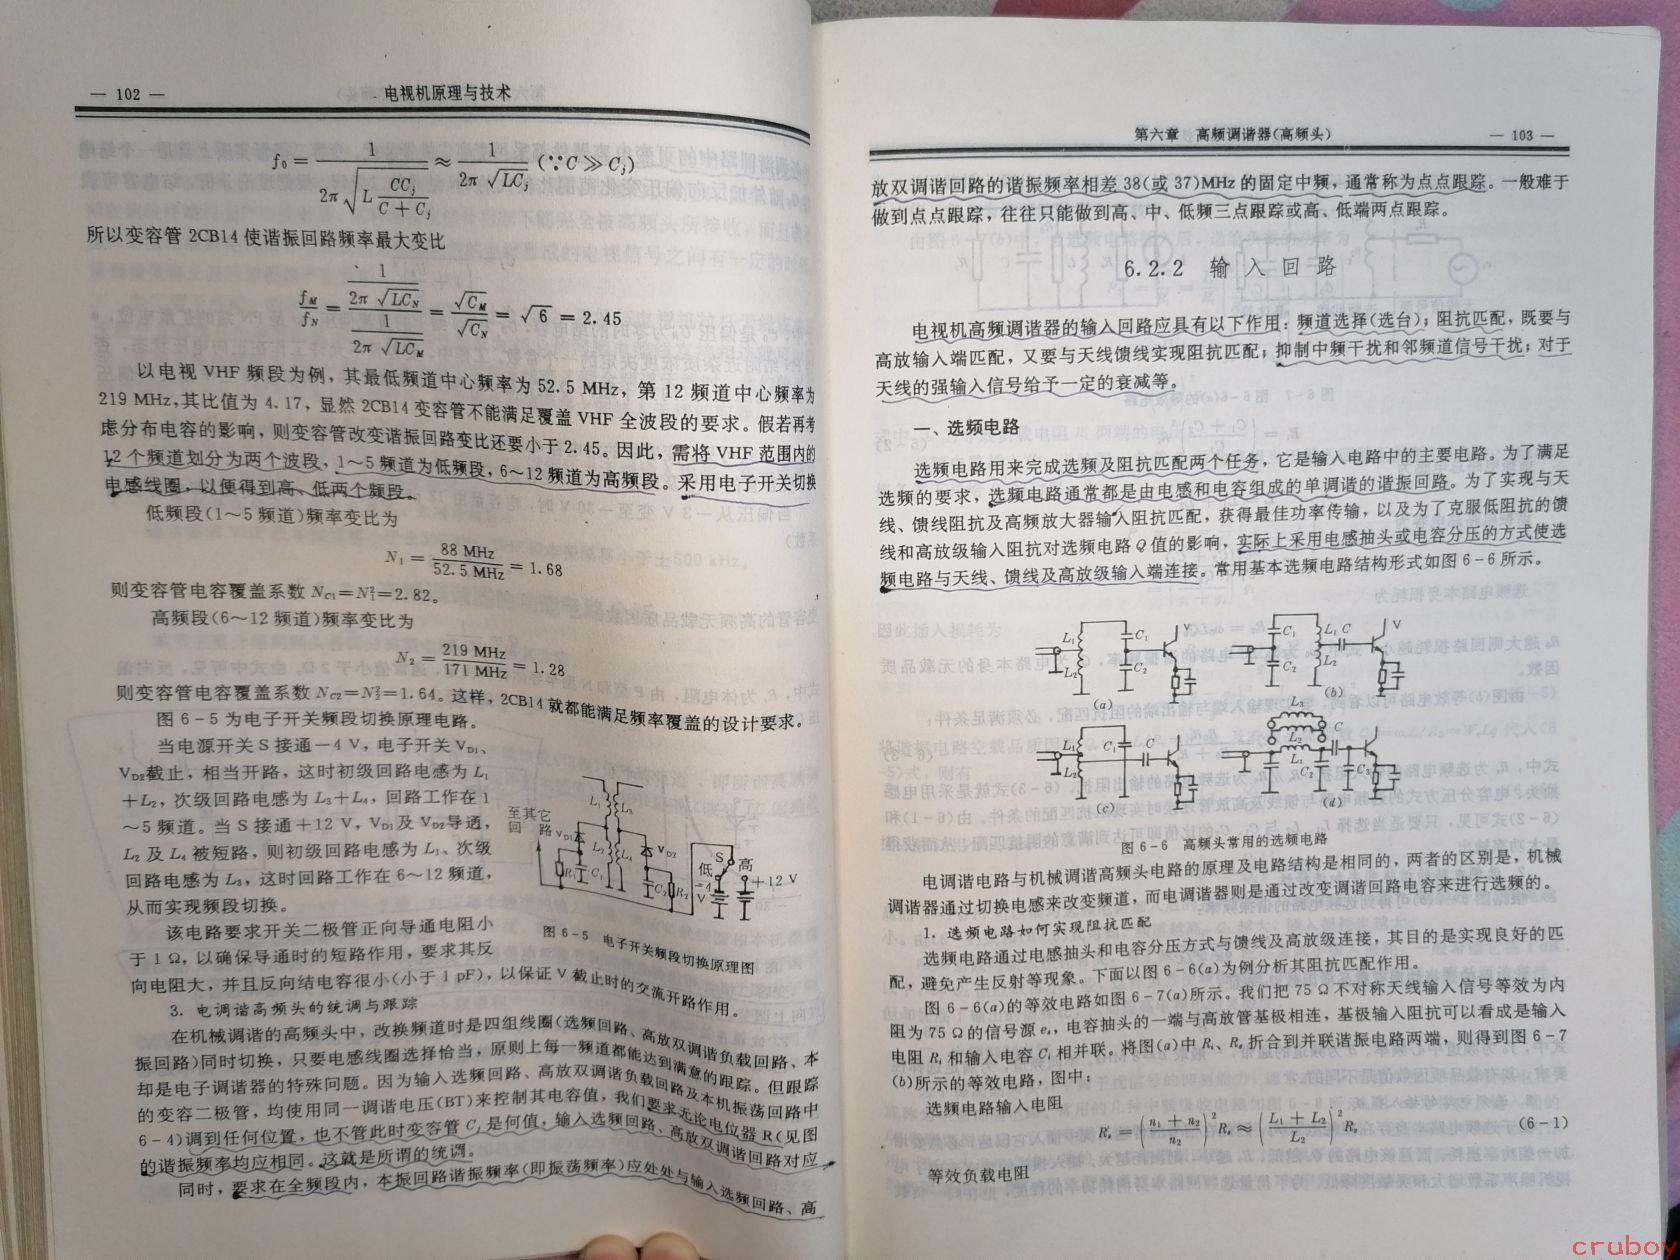 — 102 —
电视机原理与技术
f₀ = 1 / (2π √(L CCⱼ/(C + Cⱼ))) ≈ 1 / (2π √(LCⱼ)) (∵C ≫ Cⱼ)
所以变容管 2CB14 使谐振回路频率最大变比
f_M/f_N = (1/(2π √(LC_N))) / (1/(2π √(LC_M))) = √C_M/√C_N = √6 = 2.45
以电视 VHF 频段为例，其最低频道中心频率为 52.5 MHz，第 12 频道中心频率为
219 MHz，其比值为 4.17，显然 2CB14 变容管不能满足覆盖 VHF 全波段的要求。假若再考
虑分布电容的影响，则变容管改变谐振回路变比还要小于 2.45。因此，需将 VHF 范围内的
12 个频道划分为两个波段，1～5 频道为低频段，6～12 频道为高频段。采用电子开关切换
电感线圈，以便得到高、低两个频段。
低频段(1～5 频道)频率变比为
N₁ = 88 MHz / 52.5 MHz = 1.68
则变容管电容覆盖系数 N_C1=N₁²=2.82。
高频段(6～12 频道)频率变比为
N₂ = 219 MHz / 171 MHz = 1.28
则变容管电容覆盖系数 N_C2=N₂²=1.64。这样，2CB14 就都能满足频率覆盖的设计要求。
图 6-5 为电子开关频段切换原理电路。
当电源开关 S 接通－4 V，电子开关 V_D1、
V_D2截止，相当开路，这时初级回路电感为 L₁
+L₂，次级回路电感为 L₃+L₄，回路工作在 1
～5 频道。当 S 接通＋12 V，V_D1及 V_D2导通，
L₂ 及 L₄ 被短路，则初级回路电感为 L₁、次级
回路电感为 L₃，这时回路工作在 6～12 频道，
从而实现频段切换。
至其它
回 路
L₁ L₃
V_D1 L₂ L₄ V_D2
R₁ C₁ C₂ R₂
S 低 高
-4 V
+12 V
图 6-5 电子开关频段切换原理图
该电路要求开关二极管正向导通电阻小
于 1 Ω，以确保导通时的短路作用，要求其反
向电阻大，并且反向结电容很小(小于 1 pF)，以保证 V 截止时的交流开路作用。
3. 电调谐高频头的统调与跟踪
在机械调谐的高频头中，改换频道时是四组线圈(选频回路、高放双调谐负载回路、本
振回路)同时切换，只要电感线圈选择恰当，原则上每一频道都能达到满意的跟踪。但跟踪
却是电子调谐器的特殊问题。因为输入选频回路、高放双调谐负载回路及本机振荡回路中
的变容二极管，均使用同一调谐电压(BT)来控制其电容值，我们要求无论电位器 R(见图
6-4)调到任何位置，也不管此时变容管 Cⱼ 是何值，输入选频回路、高放双调谐回路对应
的谐振频率均应相同。这就是所谓的统调。
同时，要求在全频段内，本振回路谐振频率(即振荡频率)应处处与输入选频回路、高
第六章 高频调谐器(高频头)
— 103 —
放双调谐回路的谐振频率相差 38(或 37)MHz 的固定中频，通常称为点点跟踪。一般难于
做到点点跟踪，往往只能做到高、中、低频三点跟踪或高、低端两点跟踪。
6.2.2 输 入 回 路
电视机高频调谐器的输入回路应具有以下作用：频道选择(选台)；阻抗匹配，既要与
高放输入端匹配，又要与天线馈线实现阻抗匹配；抑制中频干扰和邻频道信号干扰；对于
天线的强输入信号给予一定的衰减等。
一、选频电路
选频电路用来完成选频及阻抗匹配两个任务，它是输入电路中的主要电路。为了满足
选频的要求，选频电路通常都是由电感和电容组成的单调谐的谐振回路。为了实现与天
线、馈线阻抗及高频放大器输入阻抗匹配，获得最佳功率传输，以及为了克服低阻抗的馈
线和高放级输入阻抗对选频电路 Q 值的影响，实际上采用电感抽头或电容分压的方式使选
频电路与天线、馈线及高放级输入端连接。常用基本选频电路结构形式如图 6-6 所示。
L₁ L₂ C₁ C₂ V
(a)
C₁ C₂ L₁ L₂ C V
(b)
L₁ L₂ C₁ C
(c)
L₃ L₂ L₁ C C₂ C₃
(d)
图 6-6 高频头常用的选频电路
电调谐电路与机械调谐高频头电路的原理及电路结构是相同的，两者的区别是，机械
调谐器通过切换电感来改变频道，而电调谐器则是通过改变调谐回路电容来进行选频的。
1. 选频电路如何实现阻抗匹配
选频电路通过电感抽头和电容分压方式与馈线及高放级连接，其目的是实现良好的匹
配，避免产生反射等现象。下面以图 6-6(a)为例分析其阻抗匹配作用。
图 6-6(a)的等效电路如图 6-7(a)所示。我们把 75 Ω 不对称天线输入信号等效为内
阻为 75 Ω 的信号源 eₛ，电容抽头的一端与高放管基极相连，基极输入阻抗可以看成是输入
电阻 Rᵢ 和输入电容 Cᵢ 相并联。将图(a)中 Rᵢ、Rₛ 折合到并联谐振电路两端，则得到图 6-7
(b)所示的等效电路，图中：
选频电路输入电阻
Rₛ′ = ((n₁ + n₂)/n₂)² Rₛ ≈ ((L₁ + L₂)/L₂)² Rₛ (6-1)
等效负载电阻
cruboy